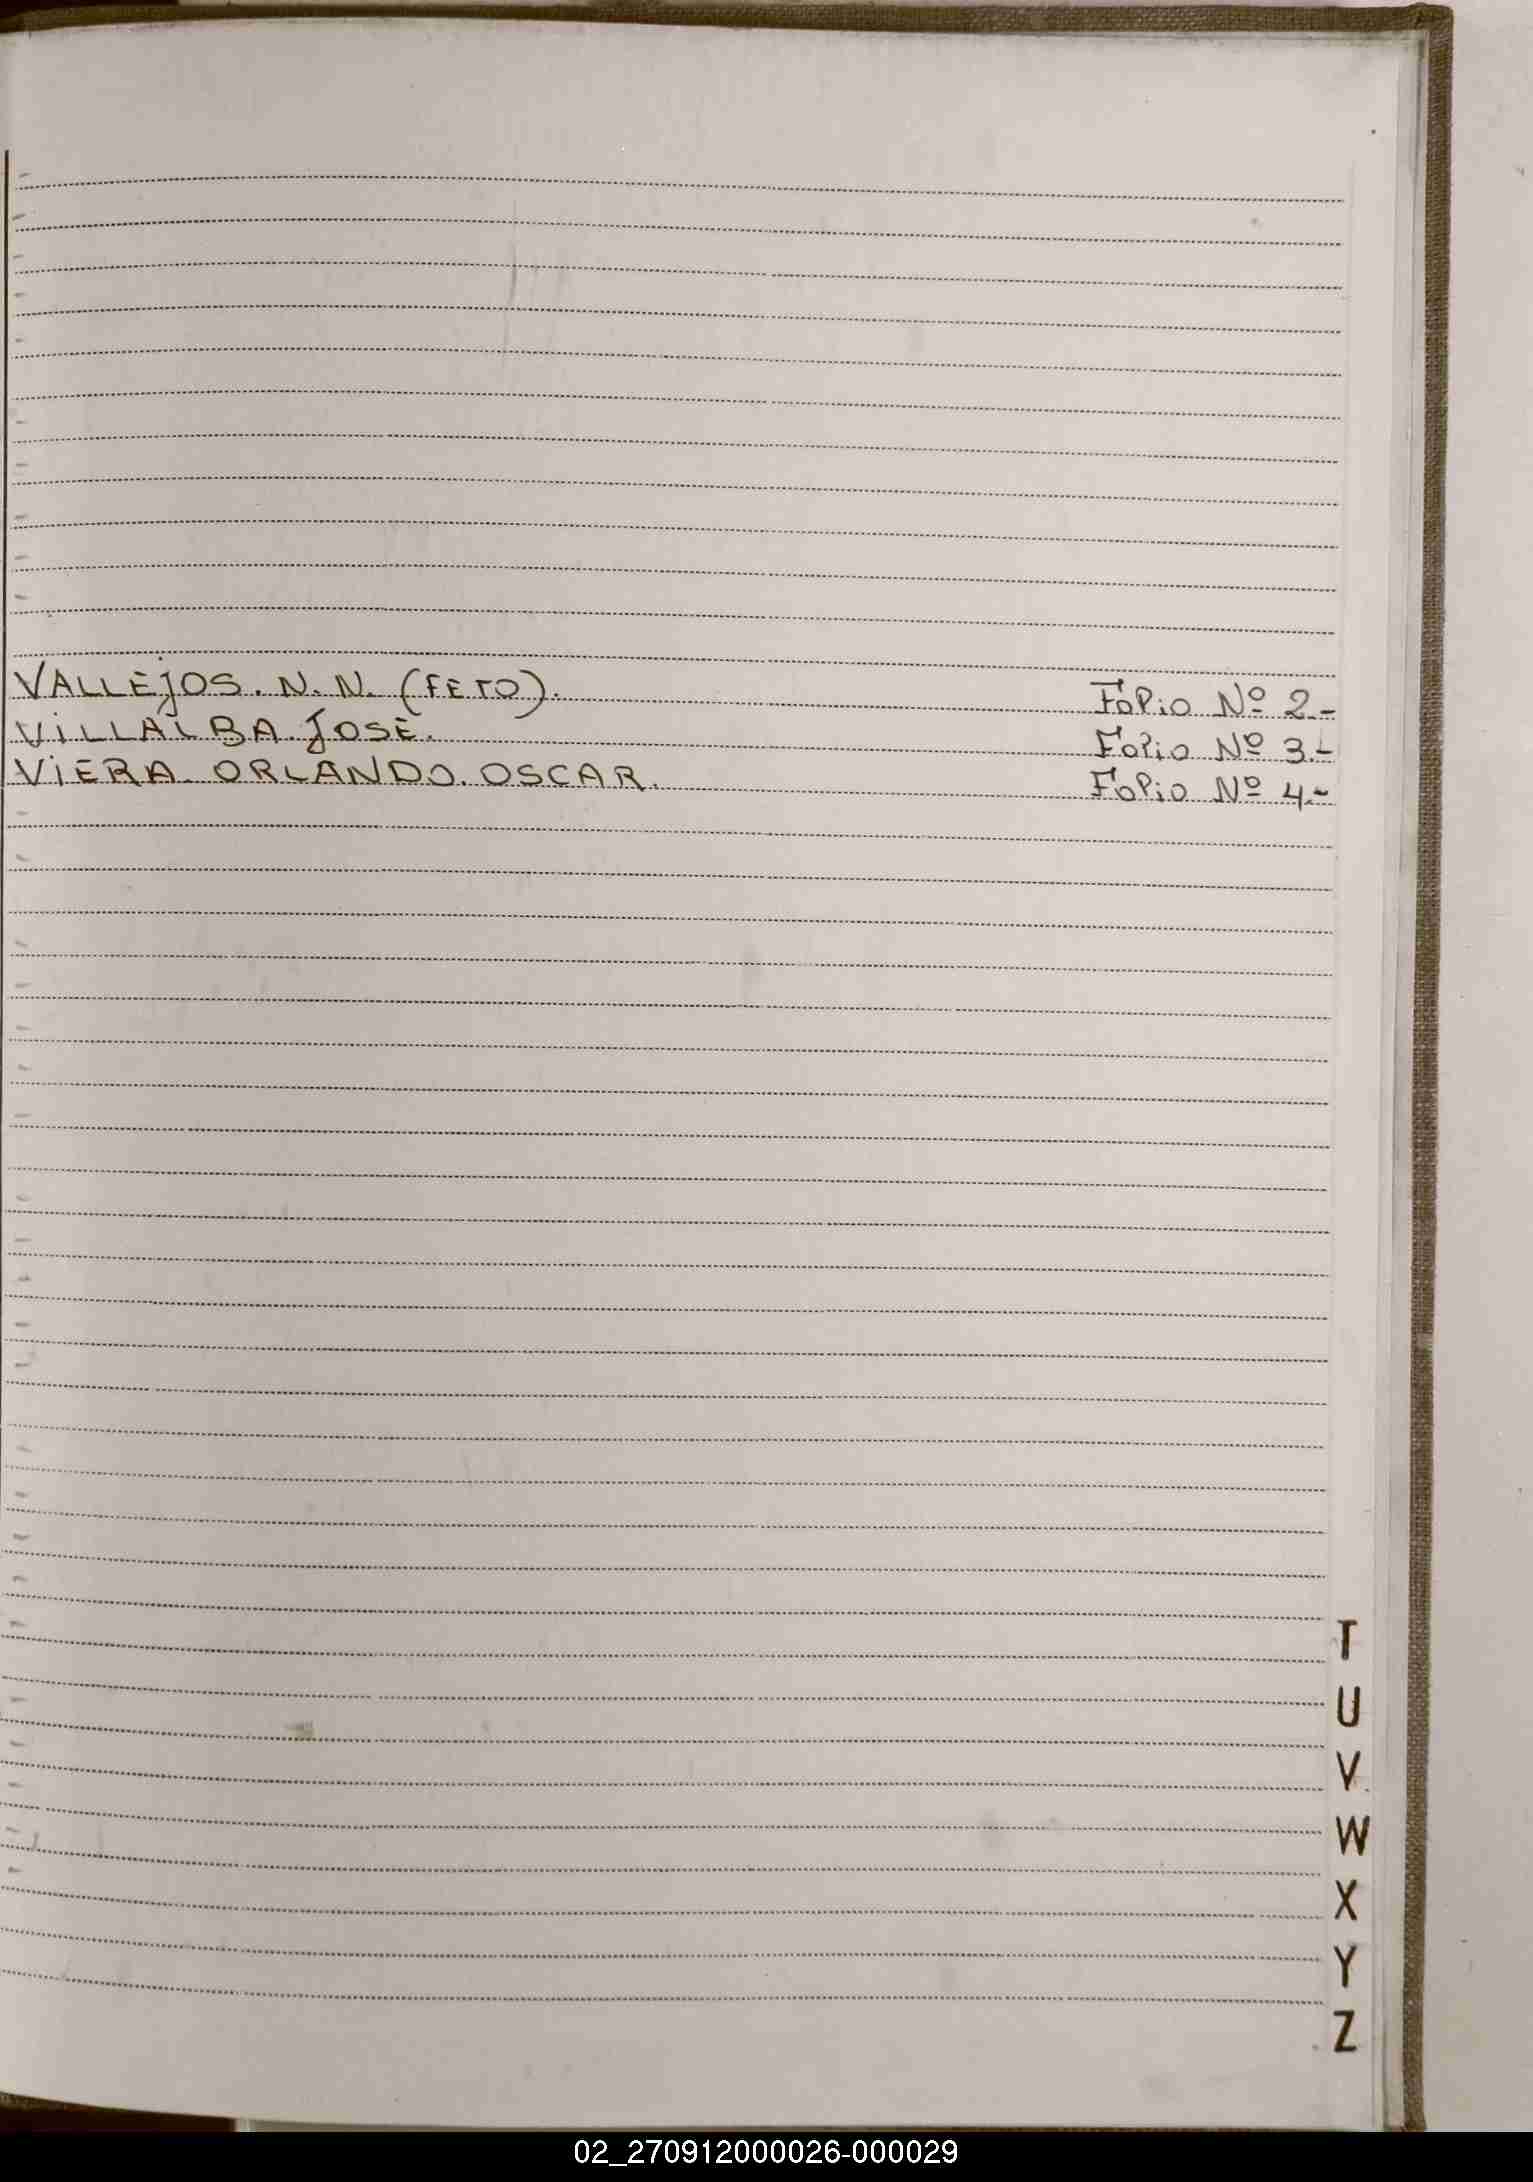 VALLEJOS. N. N. (FETO). Folio Nº 2.-
VILLALBA. JOSÉ. Folio Nº 3.-
VIERA. ORLANDO. OSCAR. Folio Nº 4.-
T
U
V
W
X
Y
Z
02_270912000026-000029